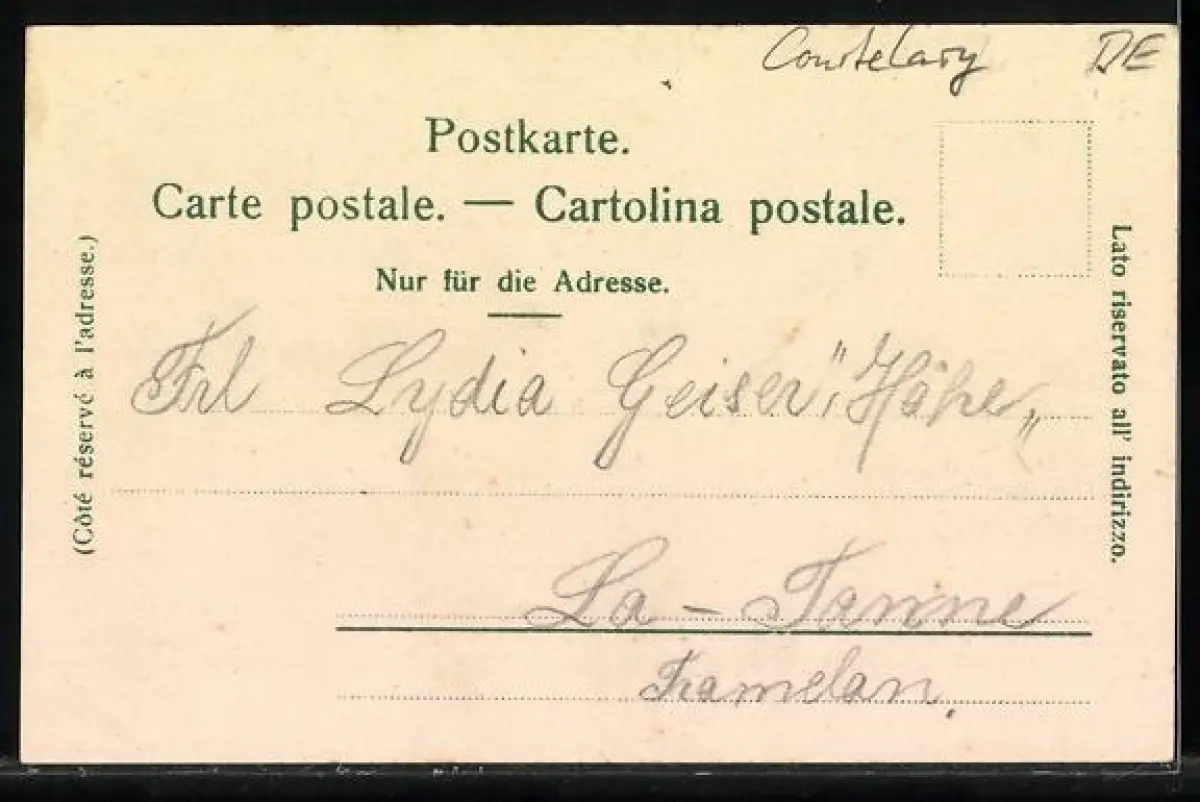 Courtelary DE
Postkarte.
Carte postale. — Cartolina postale.
Nur für die Adresse.
(Côté réservé à l'adresse.)
Lato riservato all' indirizzo.
Frl Lydia Geiser, "Höhe"
La - Tanne
Tramelan.